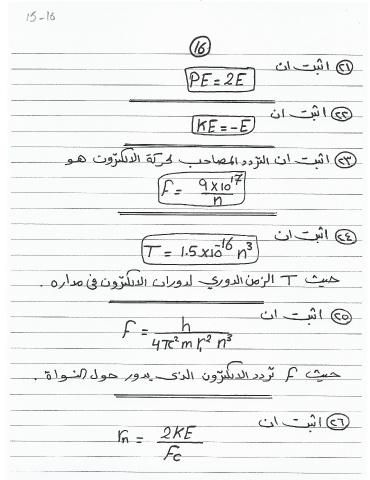 15-16
١٦
(٢١) اثبت ان
PE = 2E
(٢٢) اثبت ان
KE = -E
(٢٣) اثبت ان التردد المصاحب لحركة الالكترون هو
F = 9x10^17 / n
(٢٤) اثبت ان
T = 1.5x10^-16 n^3
حيث T الزمن الدوري لدوران الالكترون في مداره .
(٢٥) اثبت ان
F = h / 4π^2 m r₁^2 n^3
حيث F تردد الالكترون الذي يدور حول النواة .
(٢٦) اثبت ان
rn = 2KE / Fc